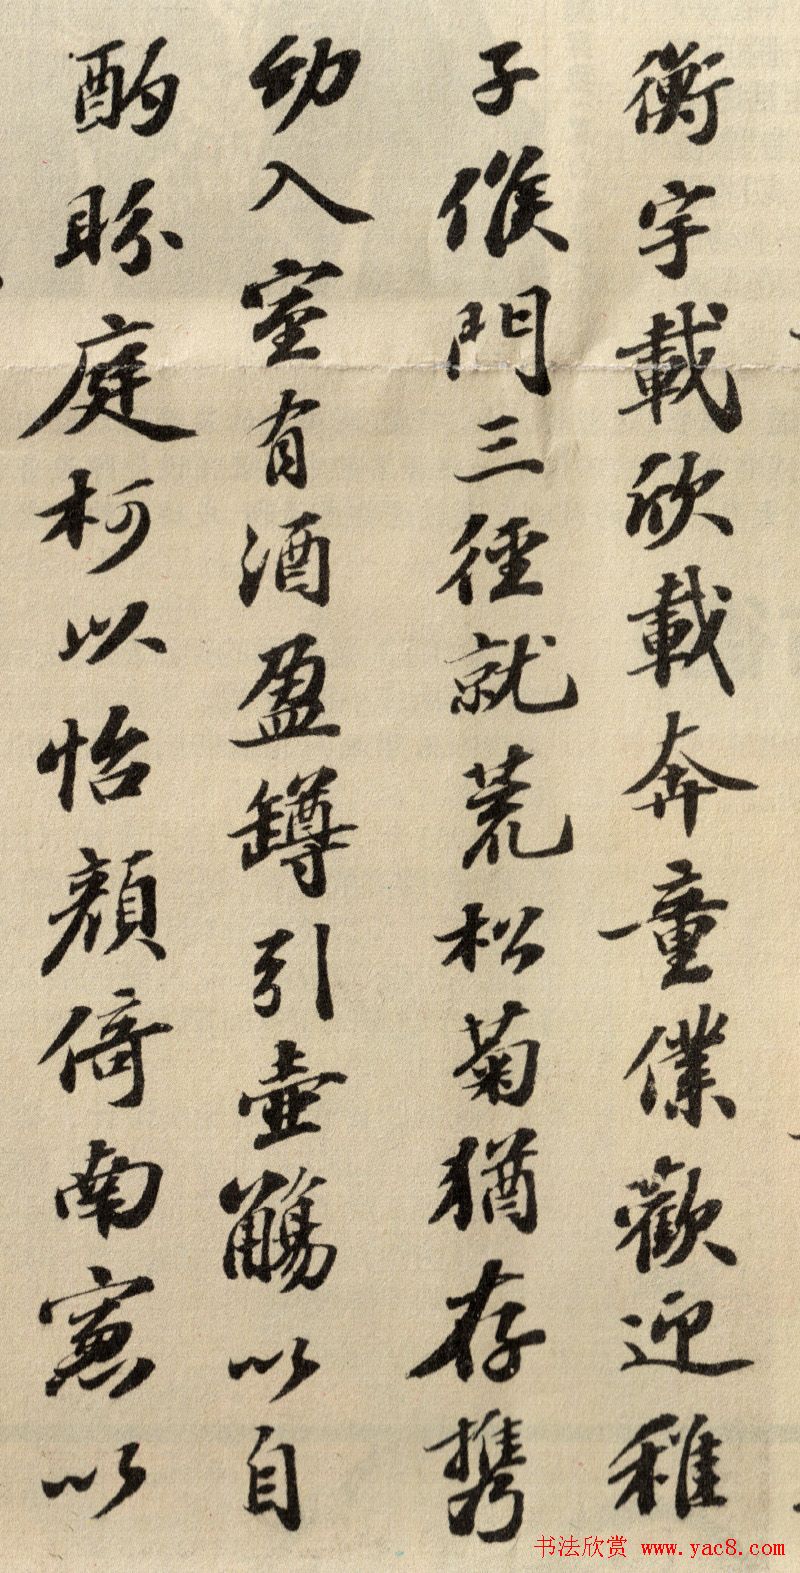 衡宇載欣載奔童僕歡迎稚
子候門三徑就荒松菊猶存携
幼入室有酒盈罇引壺觴以自
酌盼庭柯以怡顏倚南窓以
书法欣赏 www.yac8.com